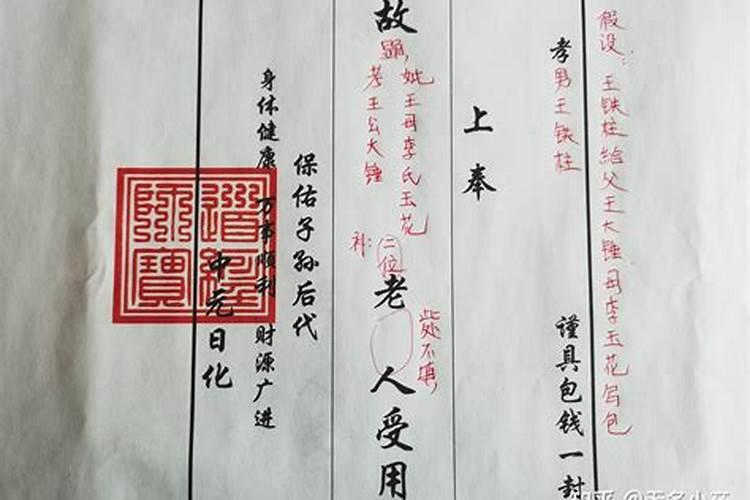 假设：王铁柱给父王大锤母李玉花写包
孝男王铁柱
谨具包钱一封
上奉
故
显
妣王母李氏玉花
考王公大锤
补：二位
老人受用
此处不填
保佑子孙后代
身体健康 万事顺利 财源广进
中元日化
道经師寶
知乎